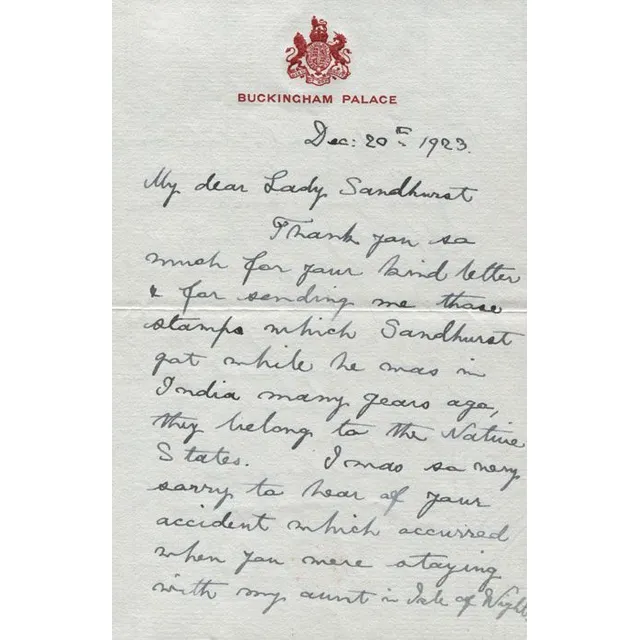 BUCKINGHAM PALACE
Dec: 20th 1923.
My dear Lady Sandhurst
Thank you so
much for your kind letter
& for sending me those
stamps which Sandhurst
got while he was in
India many years ago,
they belong to the Native
States. I was so very
sorry to hear of your
accident which occurred
when you were staying
with my aunt in Isle of Wight,